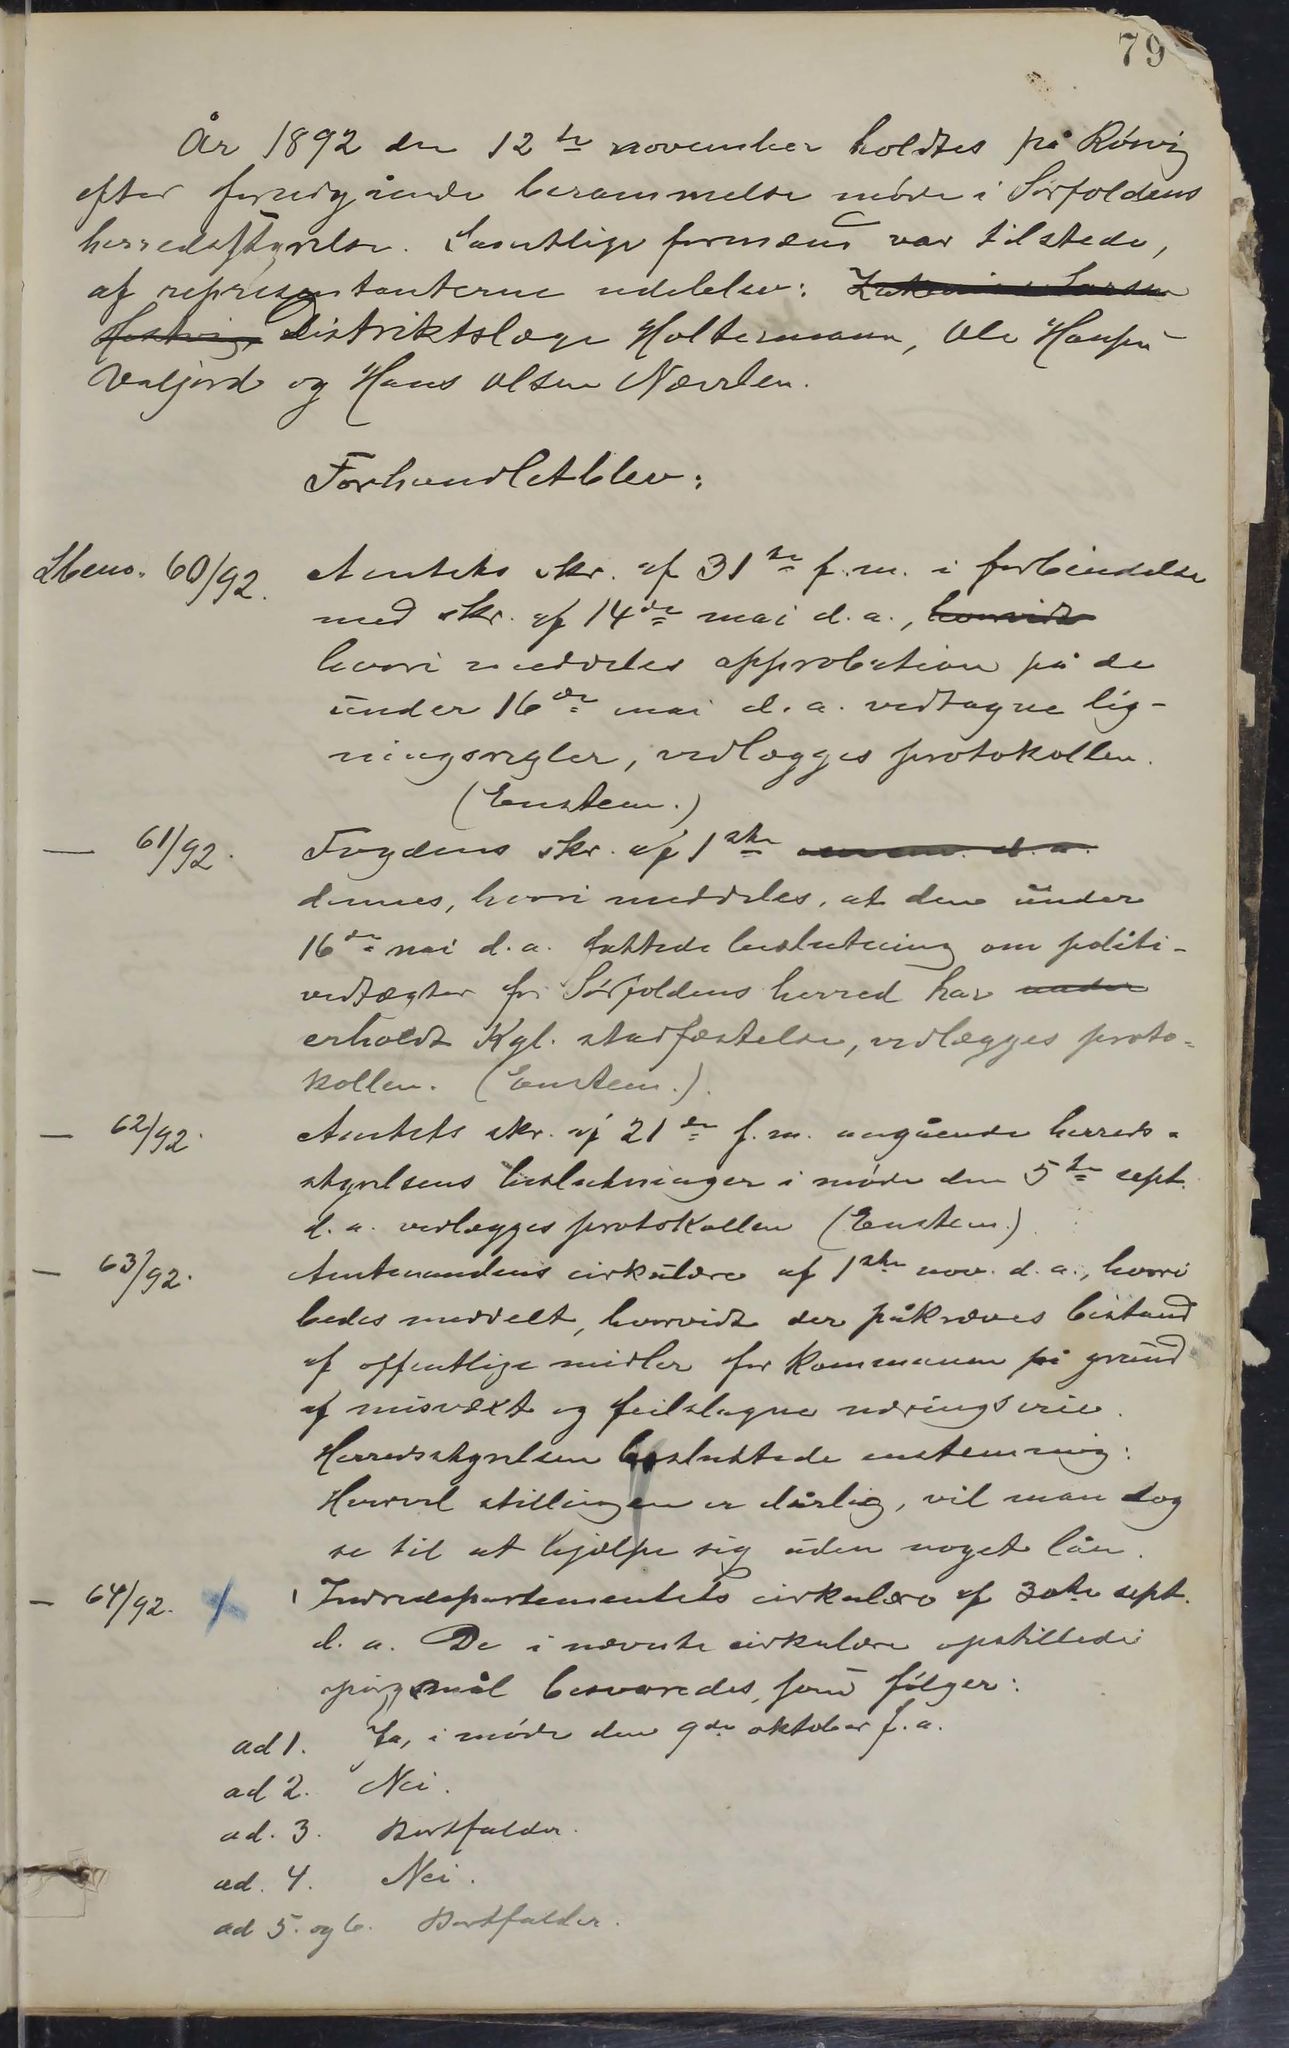 79
År 1892 den 12te november holdtes på Rösvig
efter foregående berammelse möde i Sörfoldens
herredsstyrelse. Samtlige formænd var tilstede,
af repræsentanterne udeblev: Larsen
Distriktslæge Holtermann, Ole Hansen
Valjord og Hans Olsen Nævrlen.
Forhandlet blev:
Lbeno. 60/92. Amtets skr. af 31te f.m. i forbindelse
med skr. af 14de mai d.a., hvorvidt
hvori meddeles approbation på de
under 16de mai d.a. vedtagne lig-
ningsregler, vedlægges protokollen.
(Enstem.)
— 61/92. Fogdens skr. af 1ste d.a.
dennes, hvori meddeles, at den under
16de mai d.a. fattede beslutning om politi-
vedtægter for Sörfoldens herred har under
erholdt Kgl. stadfæstelse, vedlægges proto-
kollen. (Enstem.).
— 62/92. Amtets skr. af 21de f.m. angående herreds-
styrelsens beslutninger i möde den 5te sept.
d.a. vedlægges protokollen (Enstem.)
— 63/92. Amtmandens cirkulære af 1ste nov. d.a., hvori
bedes meddelt, hvorvidt der påkræves bistand
af offentlige midler for kommunen på grund
af misvæxt og feilslagne næringsveie.
Herredsstyrelsen besluttede enstemmig:
Hvorvel stillingen er dårlig, vil man dog
se til at hjælpe sig uden noget lån.
— 64/92. Indredepartementets cirkulære af 30te sept.
d.a. De i nævnte cirkulære opstillede
spörgsmål besvaredes som fölger:
ad 1. Ja, i möde den 9de oktober f.a.
ad 2. Nei.
ad. 3. Bortfalder.
ad. 4. Nei.
ad 5. og 6. Bortfalder.